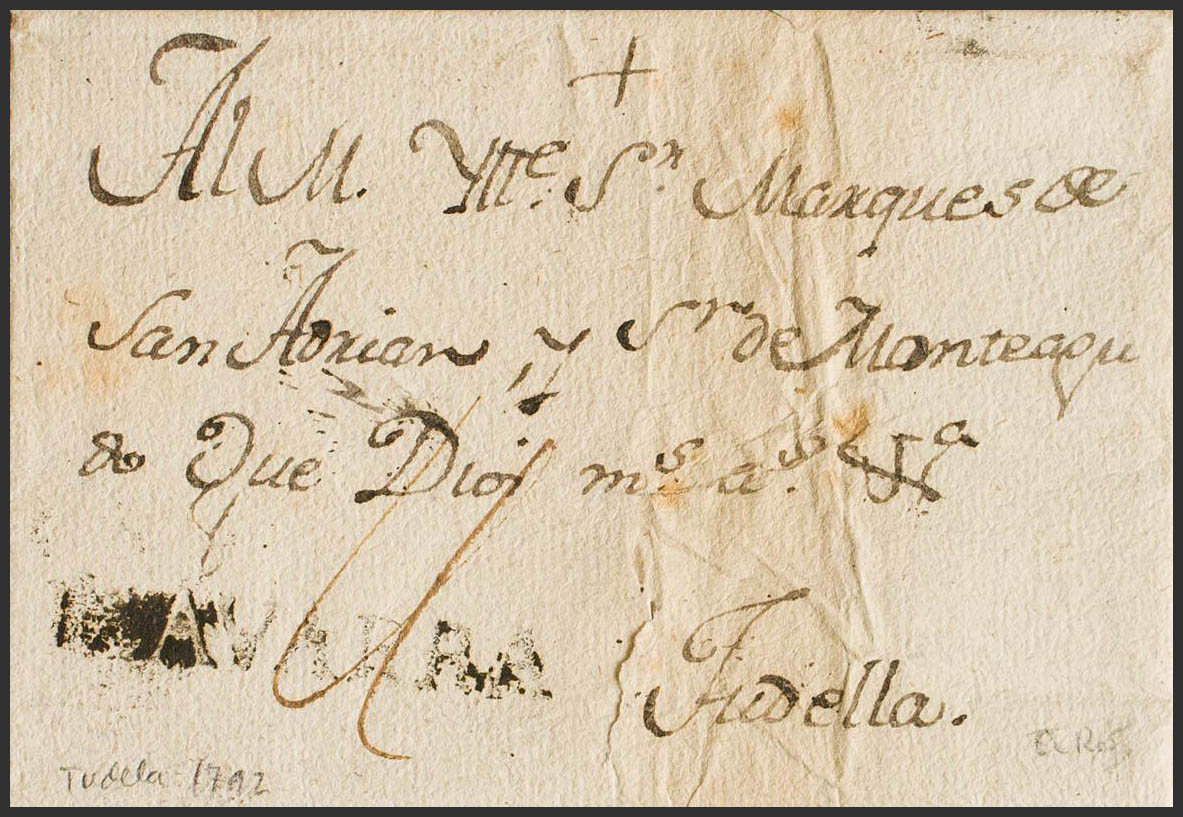 +
Al M. Ytte. Sr. Marques de
San Adrian, y Sr de Monteagu
do Que Dios ms as
NAVARRA
Tudella.
Tudela 1792